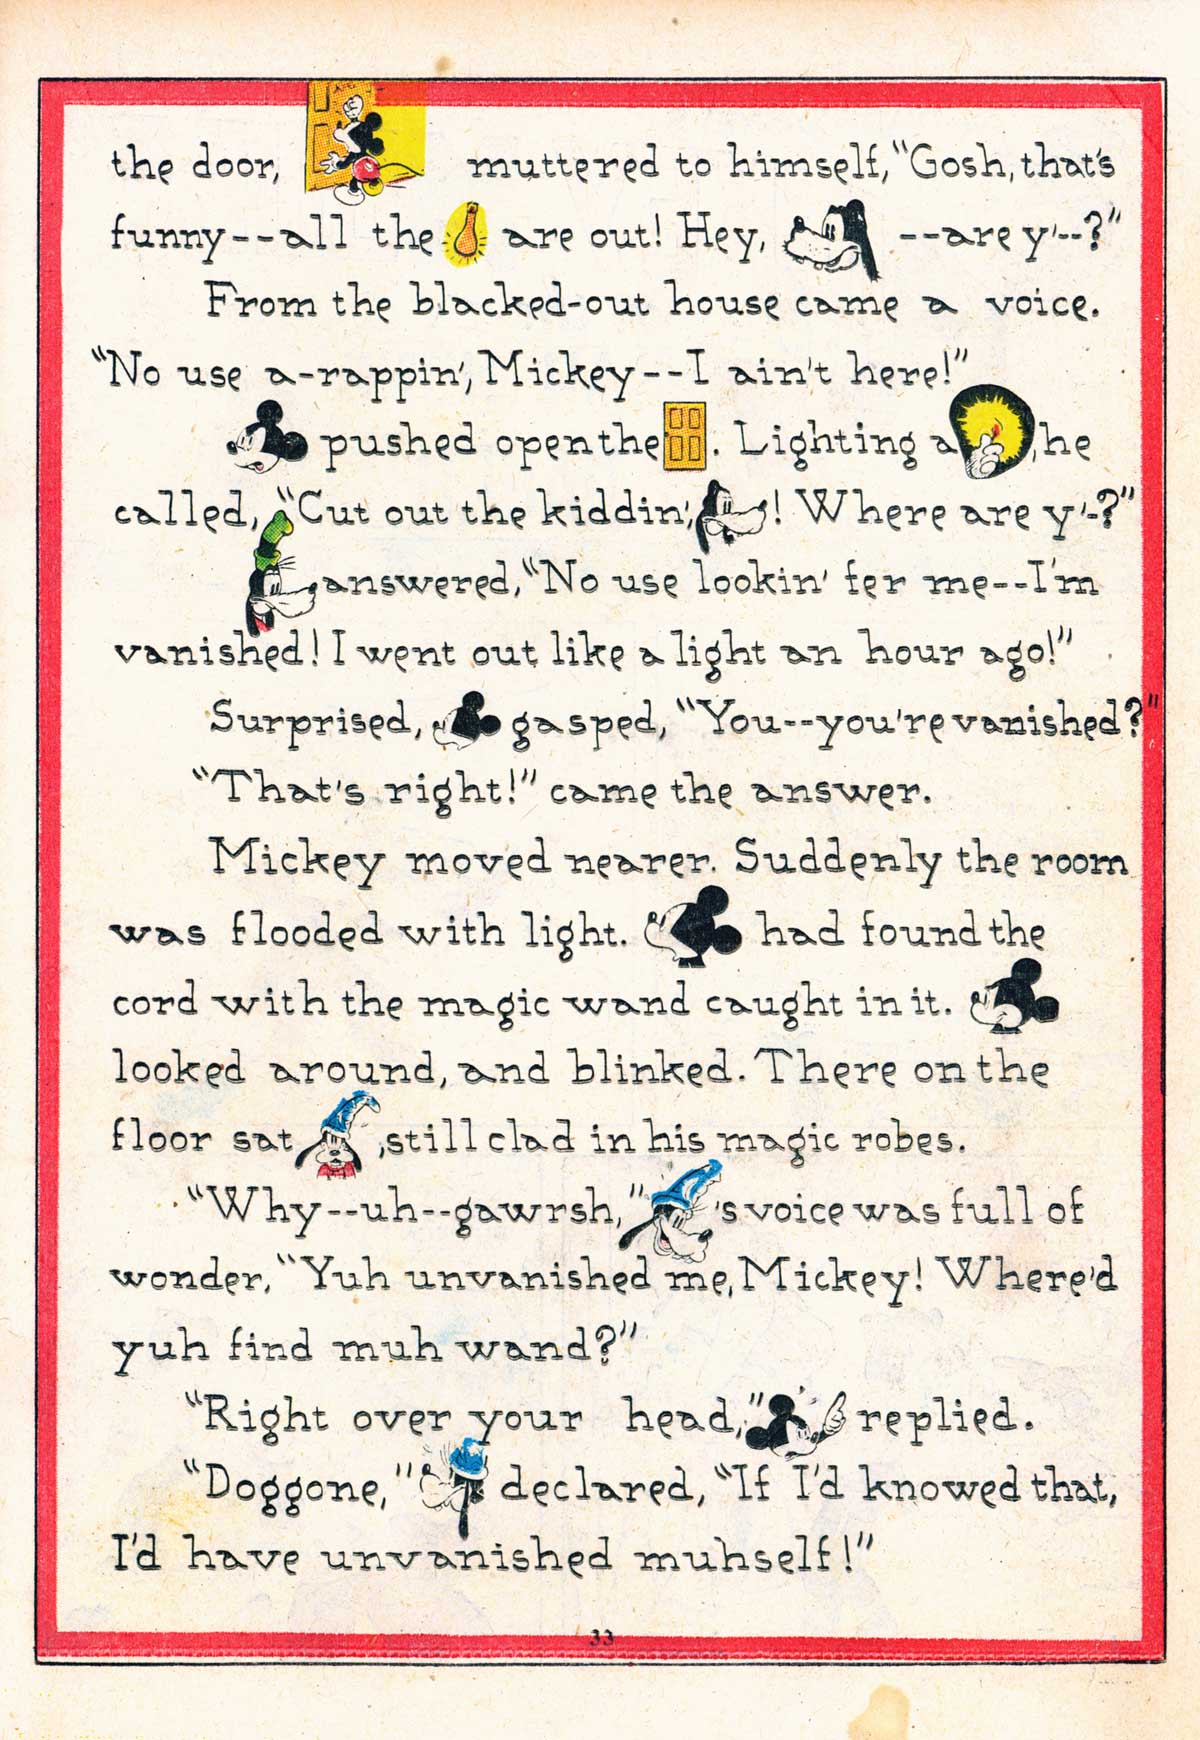 the door, muttered to himself, "Gosh, that's
funny--all the are out! Hey, --are y'--?"
From the blacked-out house came a voice.
"No use a-rappin', Mickey--I ain't here!"
pushed open the . Lighting a , he
called, "Cut out the kiddin', ! Where are y'-?"
answered, "No use lookin' fer me--I'm
vanished! I went out like a light an hour ago!"
Surprised, gasped, "You--you're vanished?"
"That's right!" came the answer.
Mickey moved nearer. Suddenly the room
was flooded with light. had found the
cord with the magic wand caught in it.
looked around, and blinked. There on the
floor sat , still clad in his magic robes.
"Why--uh--gawrsh," 's voice was full of
wonder, "Yuh unvanished me, Mickey! Where'd
yuh find muh wand?"
"Right over your head," replied.
"Doggone," declared, "If I'd knowed that,
I'd have unvanished muhself!"
33